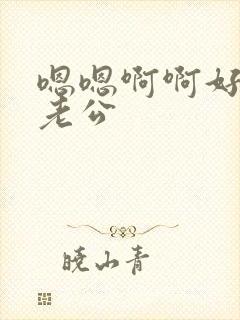 嗯嗯啊啊好
老公
晓山青